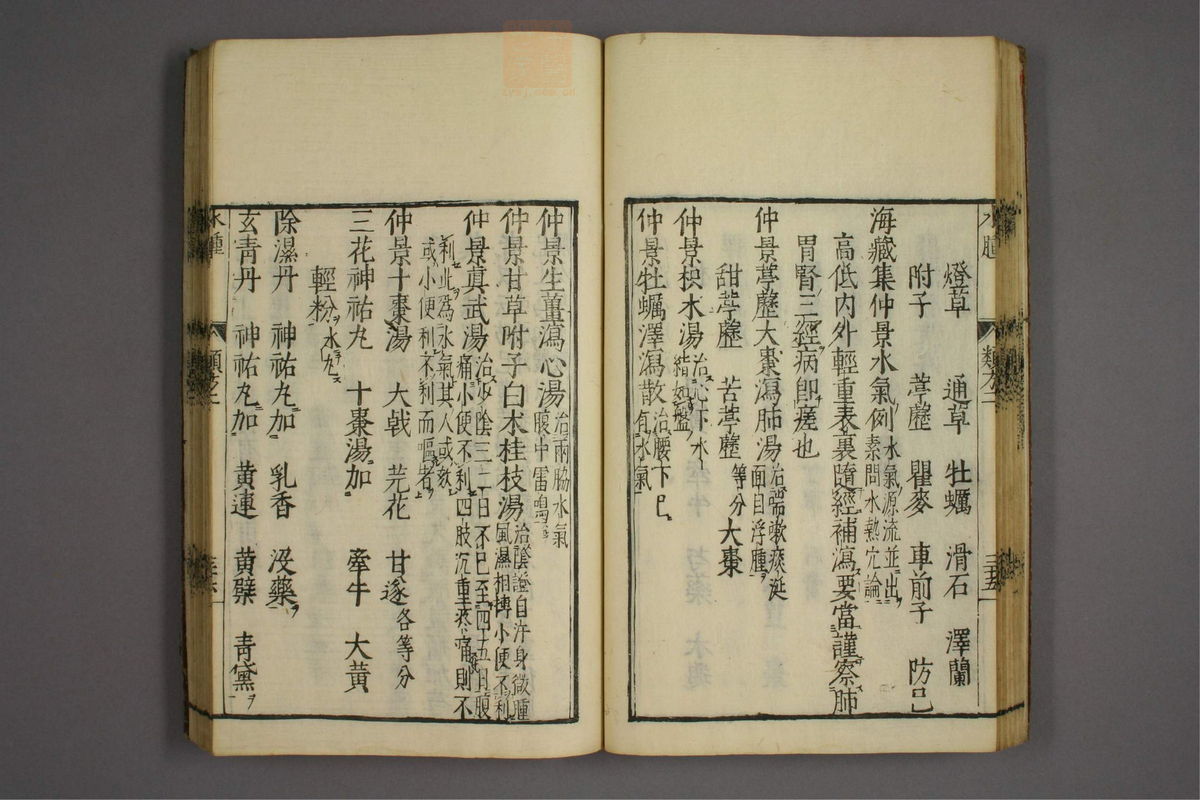 燈草 通草 牡蠣 滑石 澤蘭
附子 葶藶 瞿麥 車前子 防己
海藏集仲景水氣例 水氣源流並出素問水熱穴論
高低内外輕重表裏隨經補瀉要當謹察肺
胃腎三經病即瘥也
仲景葶藶大棗瀉肺湯 治喘嗽痰涎面目浮腫
甜葶藶 苦葶藶 等分 大棗
仲景枳朮湯 治心下水結如盤
仲景牡蠣澤瀉散 治腰下巳有水氣
仲景生薑瀉心湯 治兩脇水氣腹中雷鳴
仲景甘草附子白朮桂枝湯 治陰證自汗身微腫風濕相摶小便不利
仲景眞武湯 治少陰三二日不已至四五日腹痛小便不利四肢沉重疼痛則不
利此爲水氣其人或欬或小便利不利而嘔者
仲景十棗湯 大戟 芫花 甘遂 各等分
三花神祐丸 十棗湯加 牽牛 大黃
輕粉水丸
除濕丹 神祐丸加 乳香 没藥
玄青丹 神祐丸加 黃連 黃蘗 青黛
水腫
類方二
三十六
三十五